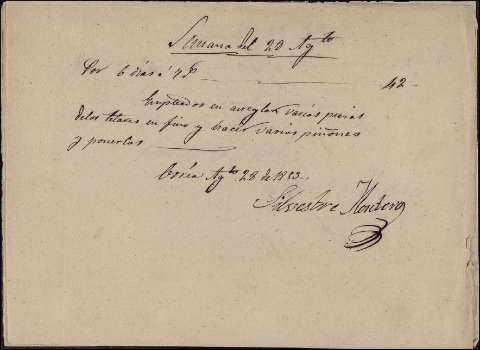 Semana del 23 Agto
Por 6 dias á 7 42
Empleados en arreglar varias piezas
de los telares en fino y hacer varios piñones
y ponerlos
Agto 28 de
Silvestre